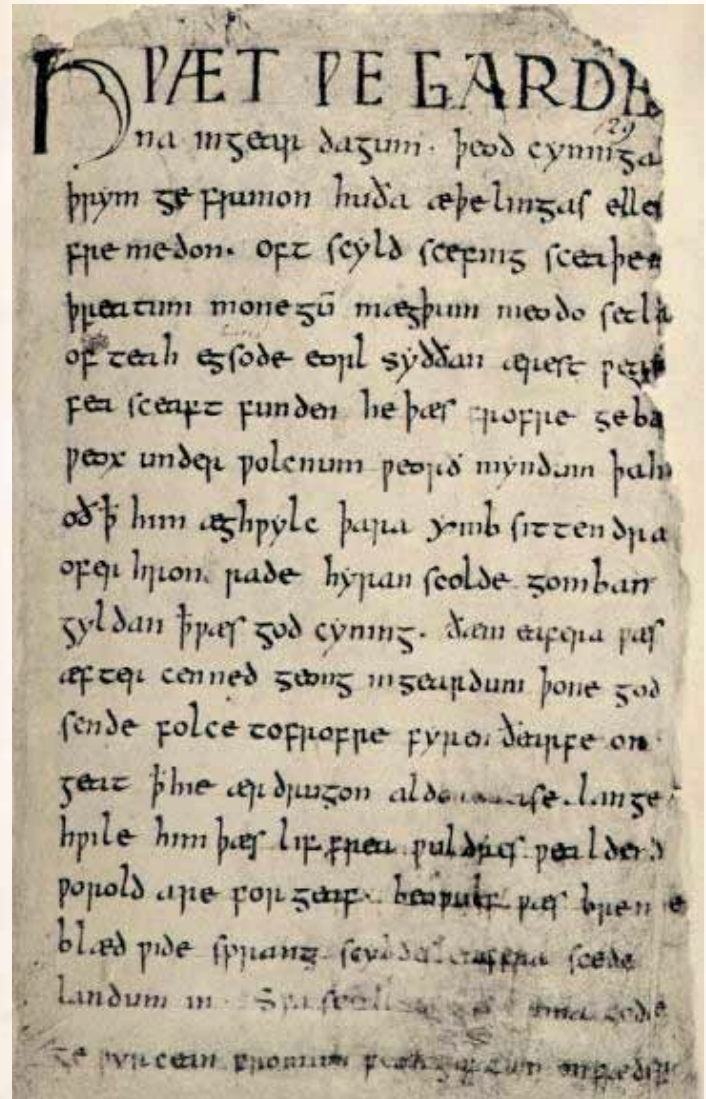 HǷÆT ǷE GARDE
129
na ingear dagum. þeod cyninga
þrym ge frunon huða æþelingas elle
fremedon. oft scyld scefing sceaþe
þreatum monegū mægþum meodo setla
of teah egsode eorl syððan ærest ƿear
fea sceaft funden he þæs frofre geba
ƿeox under ƿolcnum ƿeorð myndum þah
oð ꝥ him æghƿylc þara ymb sittendra
ofer hron rade hyran scolde gomban
gyldan ꝥ ƿæs god cyning. ðæm eafera ƿæs
æfter cenned geong ingeardum þone god
sende folce tofrofre fyren ðearfe on
geat ꝥ hie ær drugon lange
hƿile him þæs lif frea ƿuldres ƿealdend
ƿorold are for geaf. beoƿulf ƿæs breme
blæd ƿide sprang scyldes eafera scede
landum in. Sƿa guma gode
ge ƿyrcean fromum feoh giftum